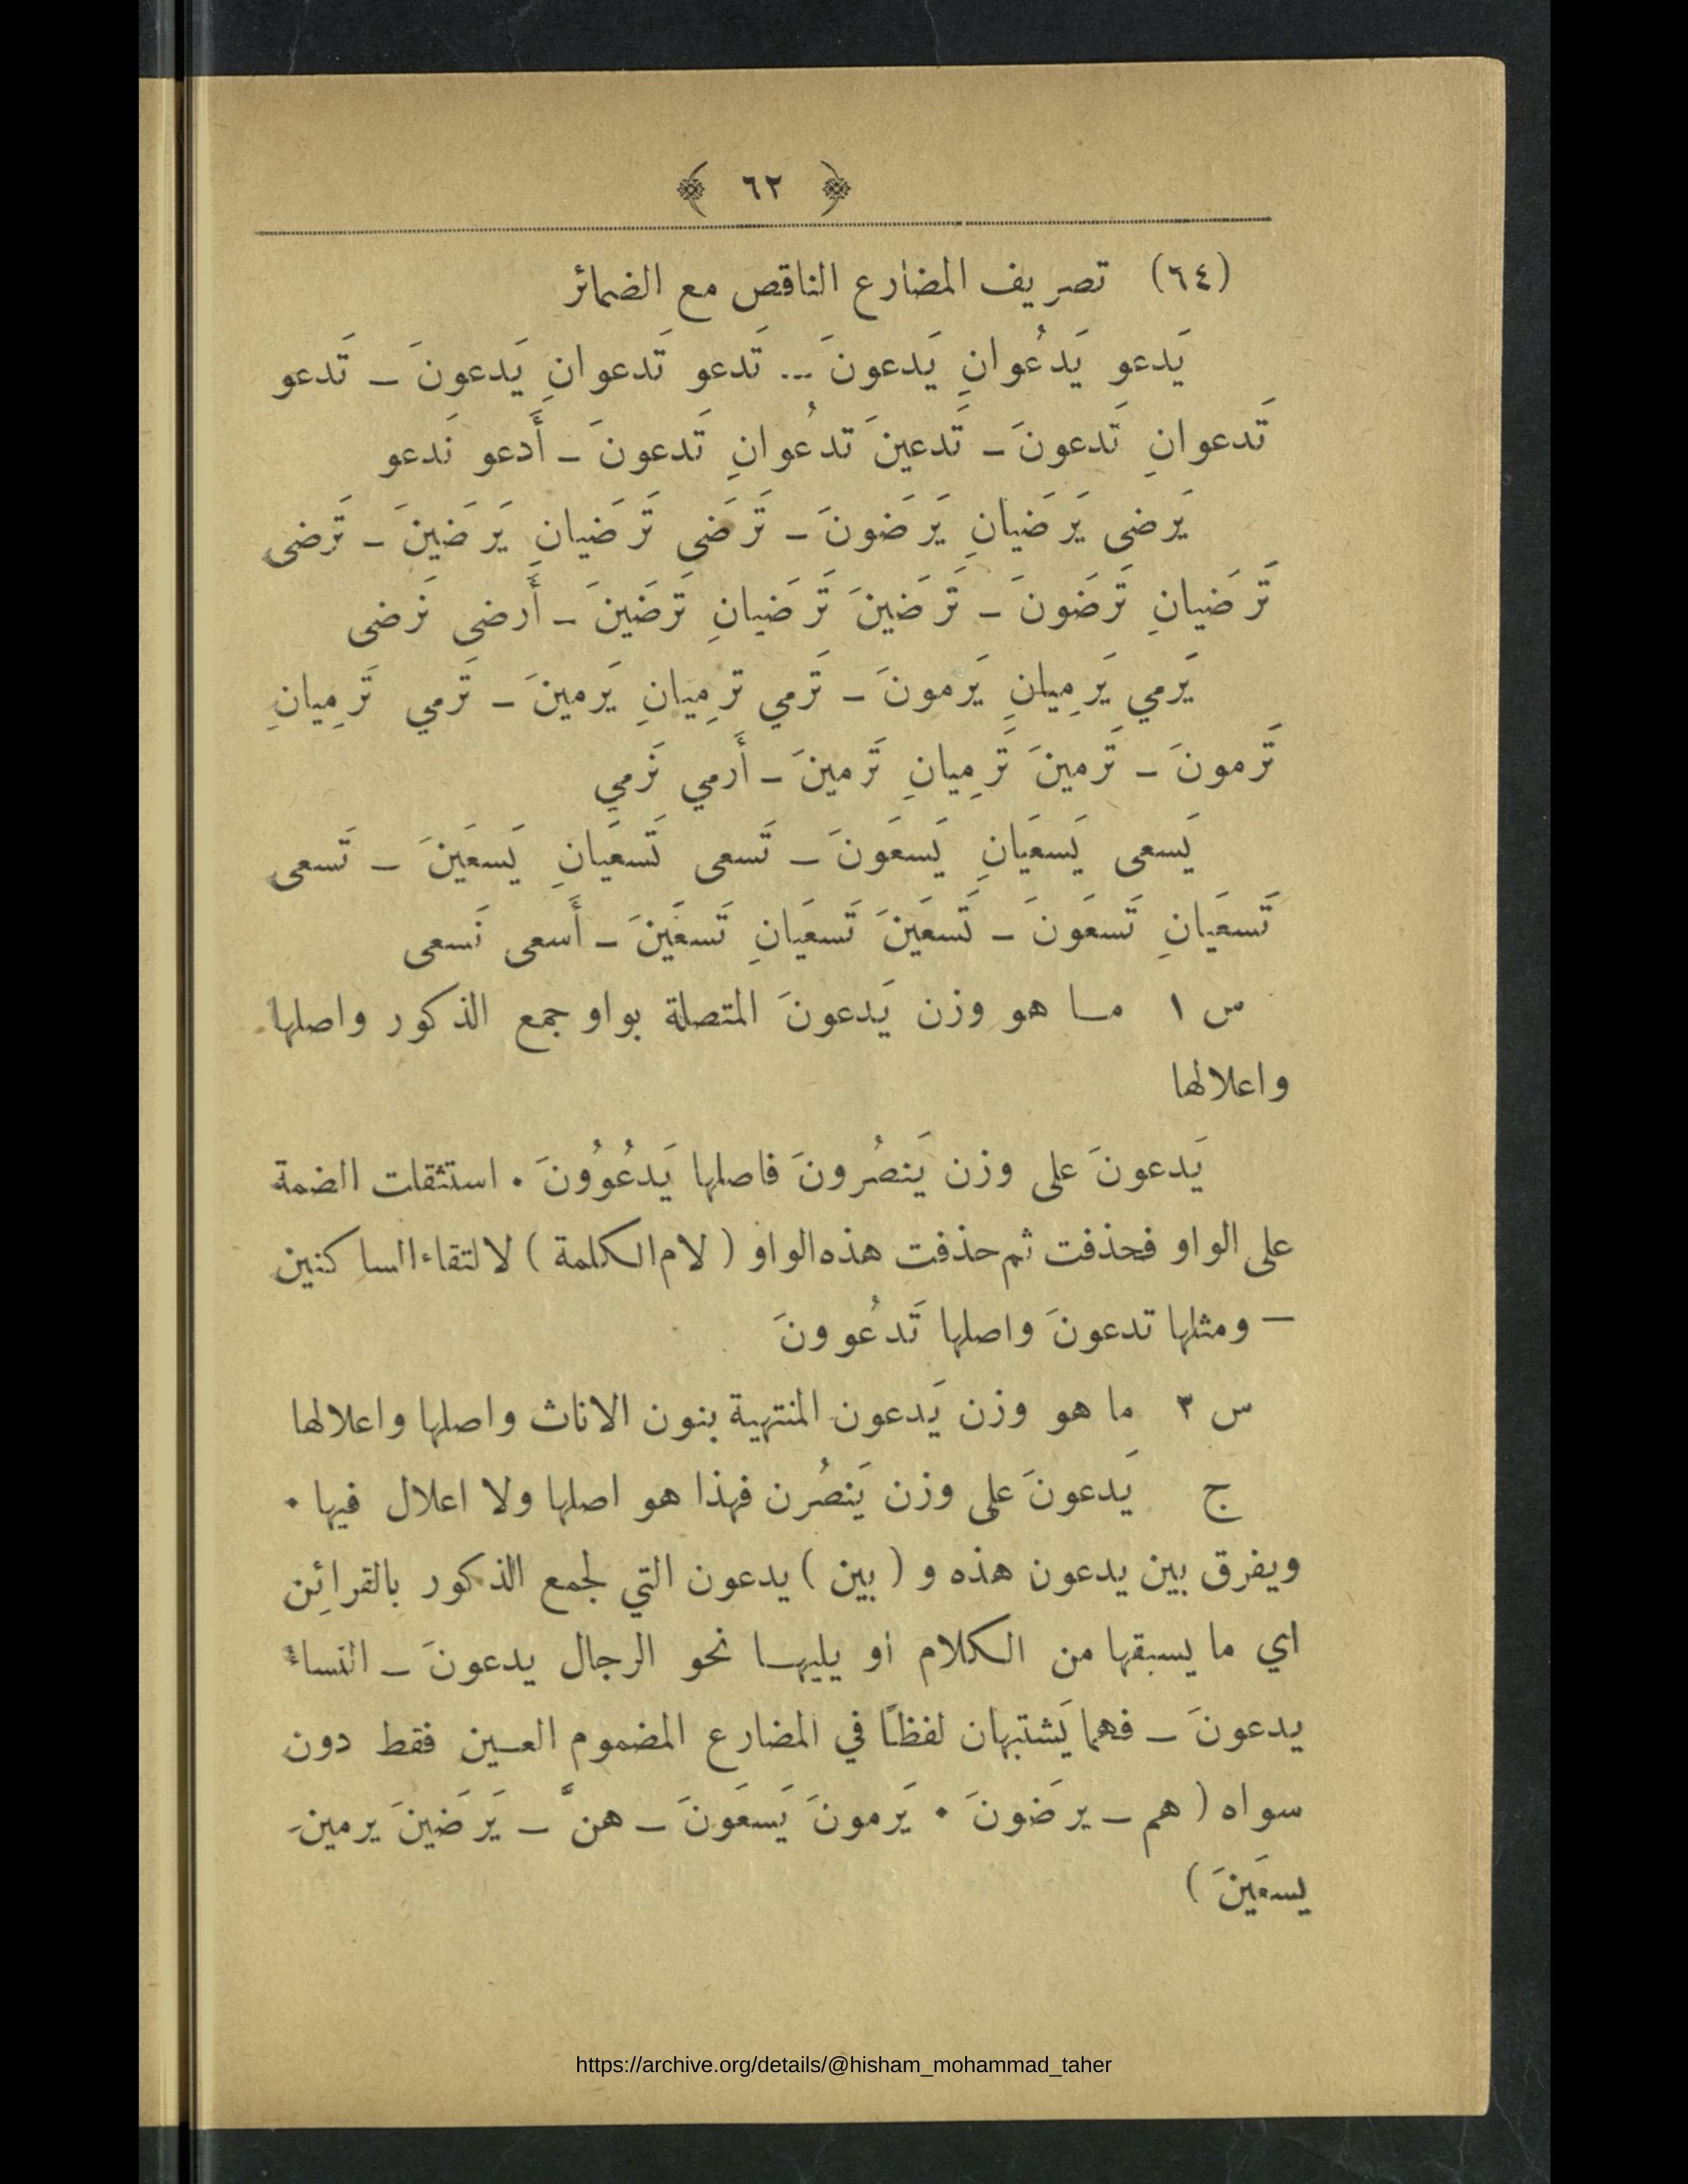 ﴿ ٦٢ ﴾
(٦٤) تصريف المضارع الناقص مع الضمائر
يَدعو يَدعُوانِ يَدعونَ ... تَدعو تَدعوانِ يَدعونَ ـ تَدعو
تَدعوانِ تَدعونَ ـ تَدعينَ تدعُوانِ تَدعونَ ـ أَدعو نَدعو
يَرضى يَرضَيانِ يَرضَونَ ـ تَرضَى تَرضَيانِ يَرضَينَ ـ تَرضى
تَرضَيانِ تَرضَونَ ـ تَرضَينَ تَرضَيانِ تَرضَينَ ـ أَرضى نَرضى
يَرمي يَرمِيانِ يَرمونَ ـ تَرمي ترمِيانِ يَرمينَ ـ تَرمي تَرمِيانِ
تَرمونَ ـ تَرمينَ تَرمِيانِ تَرمينَ ـ أَرمي نَرمي
يَسعى يَسعَيانِ يَسعَونَ ـ تَسعى تَسعَيانِ يَسعَينَ ـ تَسعى
تَسعَيانِ تَسعَونَ ـ تَسعَينَ تَسعَيانِ تَسعَينَ ـ أَسعى نَسعى
س ١ مـا هو وزن يَدعونَ المتصلة بواو جمع الذكور واصلها
واعلالها
يَدعونَ على وزن يَنصُرونَ فاصلها يَدعُوُونَ . استثقلت الضمة
على الواو فحذفت ثم حذفت هذه الواو ( لام الكلمة ) لالتقاء الساكنين
— ومثلها تدعونَ واصلها تَدعُوونَ
س ٣ ما هو وزن يَدعون المنتهية بنون الاناث واصلها واعلالها
ج يَدعونَ على وزن يَنصُرن فهذا هو اصلها ولا اعلال فيها .
ويفرق بين يدعون هذه و ( بين ) يدعون التي لجمع الذكور بالقرائِن
اي ما يسبقها من الكلام او يليهـا نحو الرجال يدعونَ ـ النساءُ
يدعونَ ـ فهما يَشتبهان لفظًا في المضارع المضموم العـين فقط دون
سواه ( هم ـ يرضَونَ . يَرمونَ يَسعَونَ ـ هنَّ ـ يَرضَينَ يرمينَ
يسعَينَ )
https://archive.org/details/@hisham_mohammad_taher